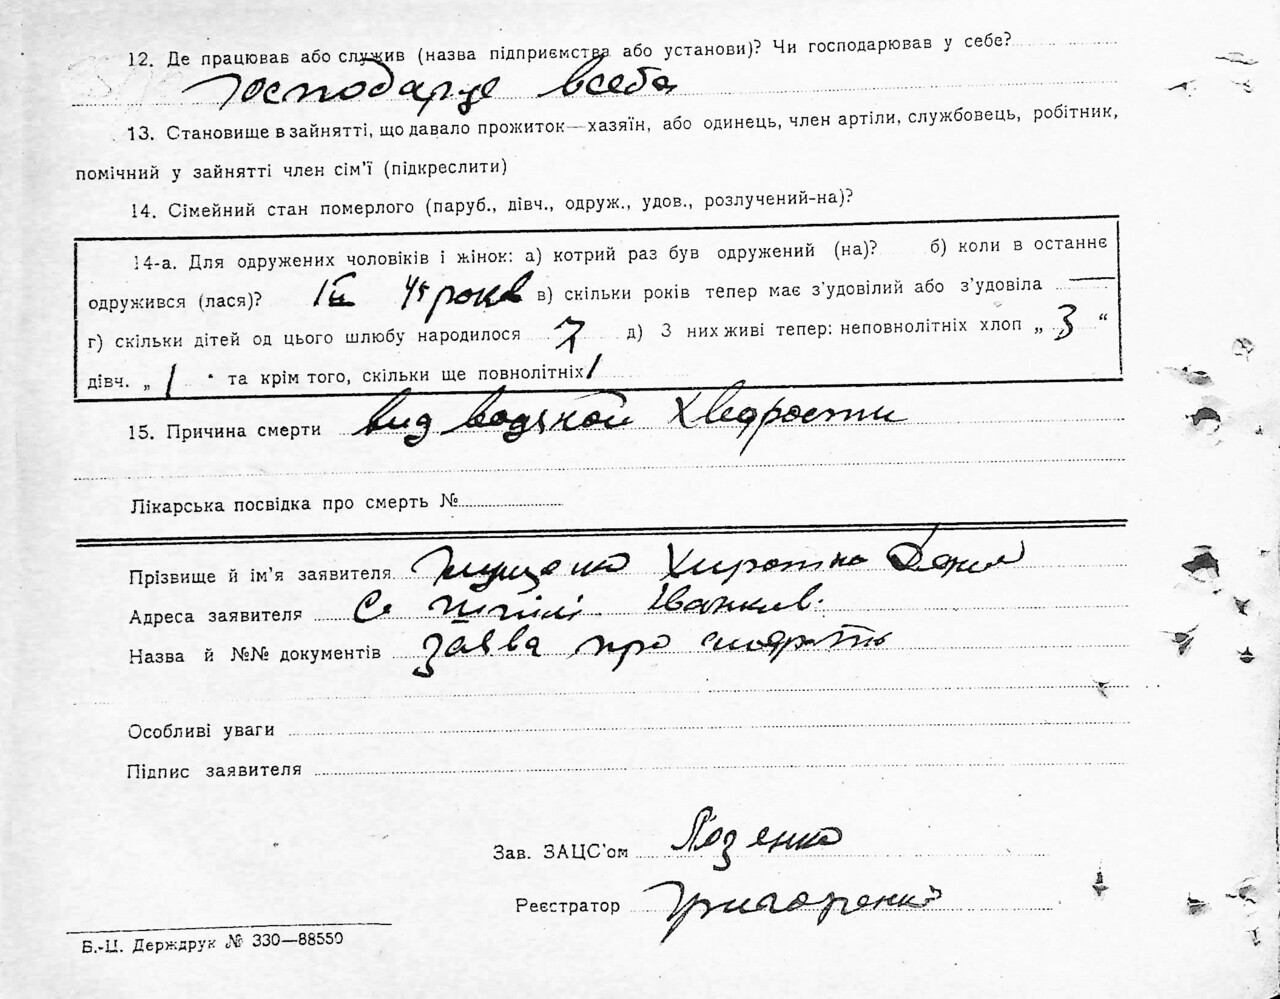 12. Де працював або служив (назва підприємства або установи)? Чи господарював у себе?
Господарує всебя
13. Становище в зайнятті, що давало прожиток—хазяїн, або одинець, член артілі, службовець, робітник,
помічний у зайнятті член сім'ї (підкреслити)
14. Сімейний стан померлого (паруб., дівч., одруж., удов., розлучений-на)?
14-а. Для одружених чоловіків і жінок: а) котрий раз був одружений (на)? б) коли в останнє
одружився (лася)? 45 років в) скільки років тепер має з'удовілий або з'удовіла —
г) скільки дітей од цього шлюбу народилося 7 д) З них живі тепер: неповнолітніх хлоп „ 3 “
дівч. „ 1 “ та крім того, скільки ще повнолітніх 1
15. Причина смерти вид водяной хворости
Лікарська посвідка про смерть №
Прізвище й ім'я заявителя
Адреса заявителя Іванків.
Назва й №№ документів заява про смерть
Особливі уваги
Підпис заявителя
Зав. ЗАЦС'ом
Реєстратор Григоренко
Б.-Ц. Держдрук № 330—88550